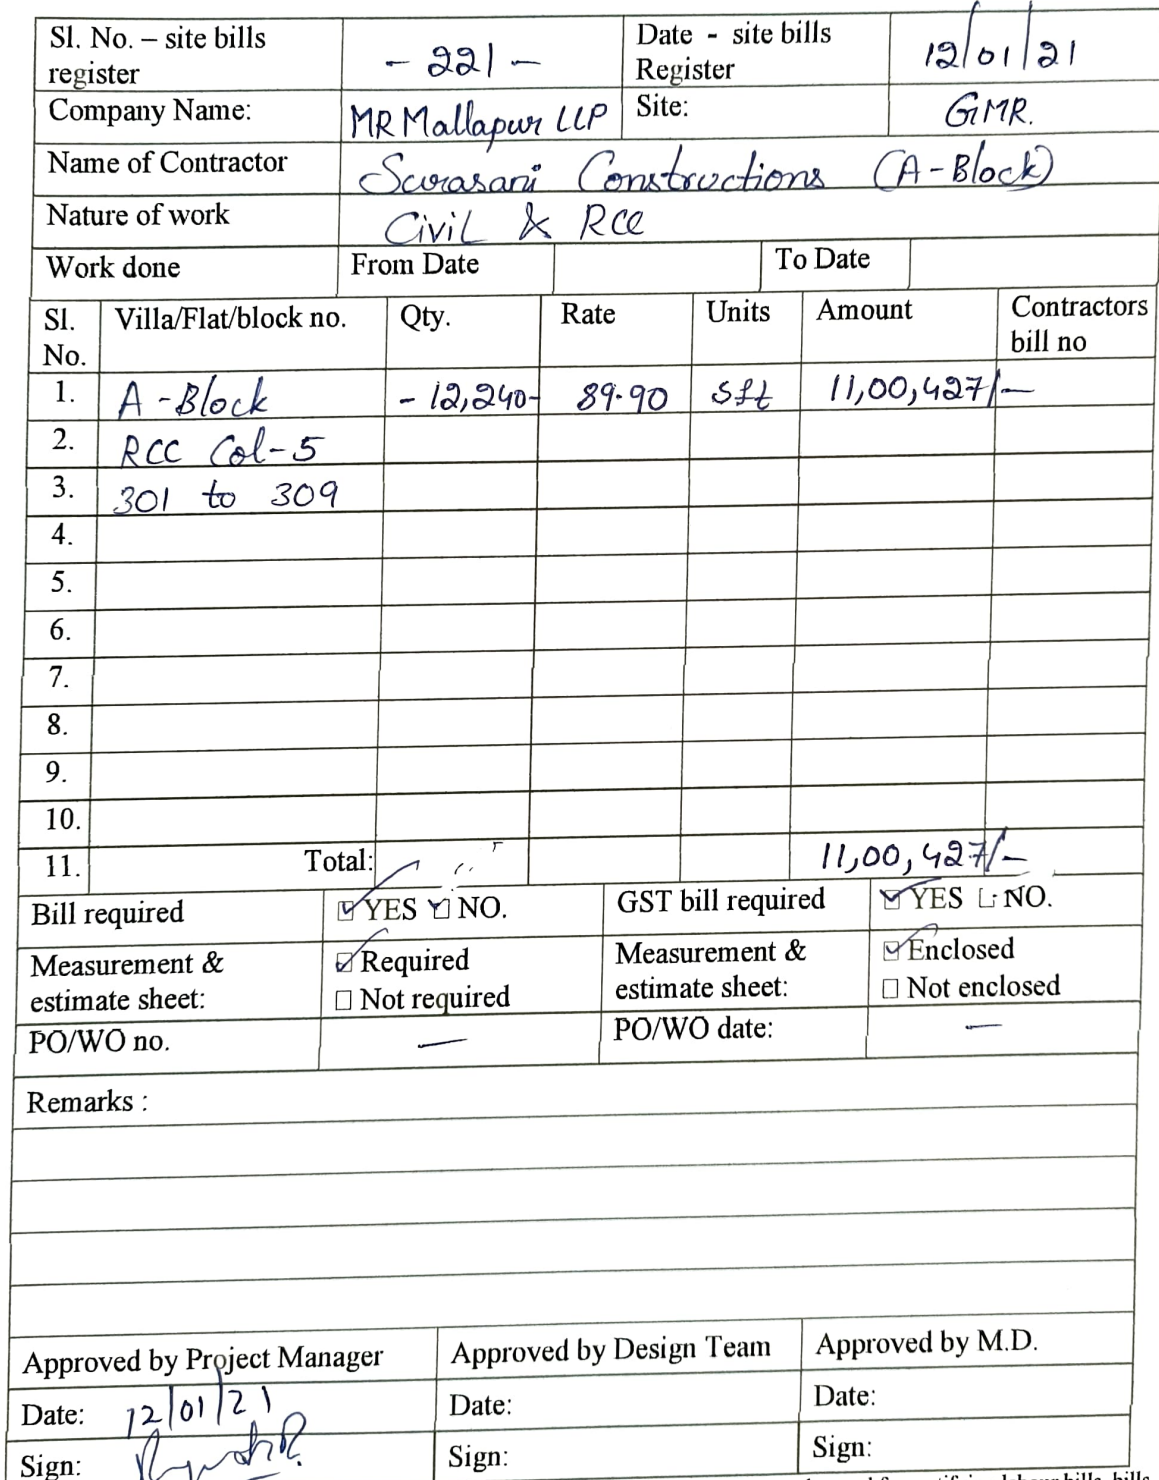 Sl. No. – site bills register - 221 - Date - site bills Register 12/01/21
Company Name: MR Mallapur LLP Site: GMR.
Name of Contractor Sarasani Constructions (A-Block)
Nature of work Civil & RCC
Work done From Date To Date
Sl. No. Villa/Flat/block no. Qty. Rate Units Amount Contractors bill no
1. A-Block - 12,240- 89.90 sft 11,00,427/-
2. RCC Col-5
3. 301 to 309
4.
5.
6.
7.
8.
9.
10.
11. Total: 11,00,427/-
Bill required ☑ YES ☑ NO. GST bill required ☑ YES ☐ NO.
Measurement & estimate sheet: ☑ Required ☐ Not required Measurement & estimate sheet: ☑ Enclosed ☐ Not enclosed
PO/WO no. — PO/WO date: —
Remarks :
Approved by Project Manager Approved by Design Team Approved by M.D.
Date: 12/01/21 Date: Date:
Sign: Sign: Sign:
labour bills, bills